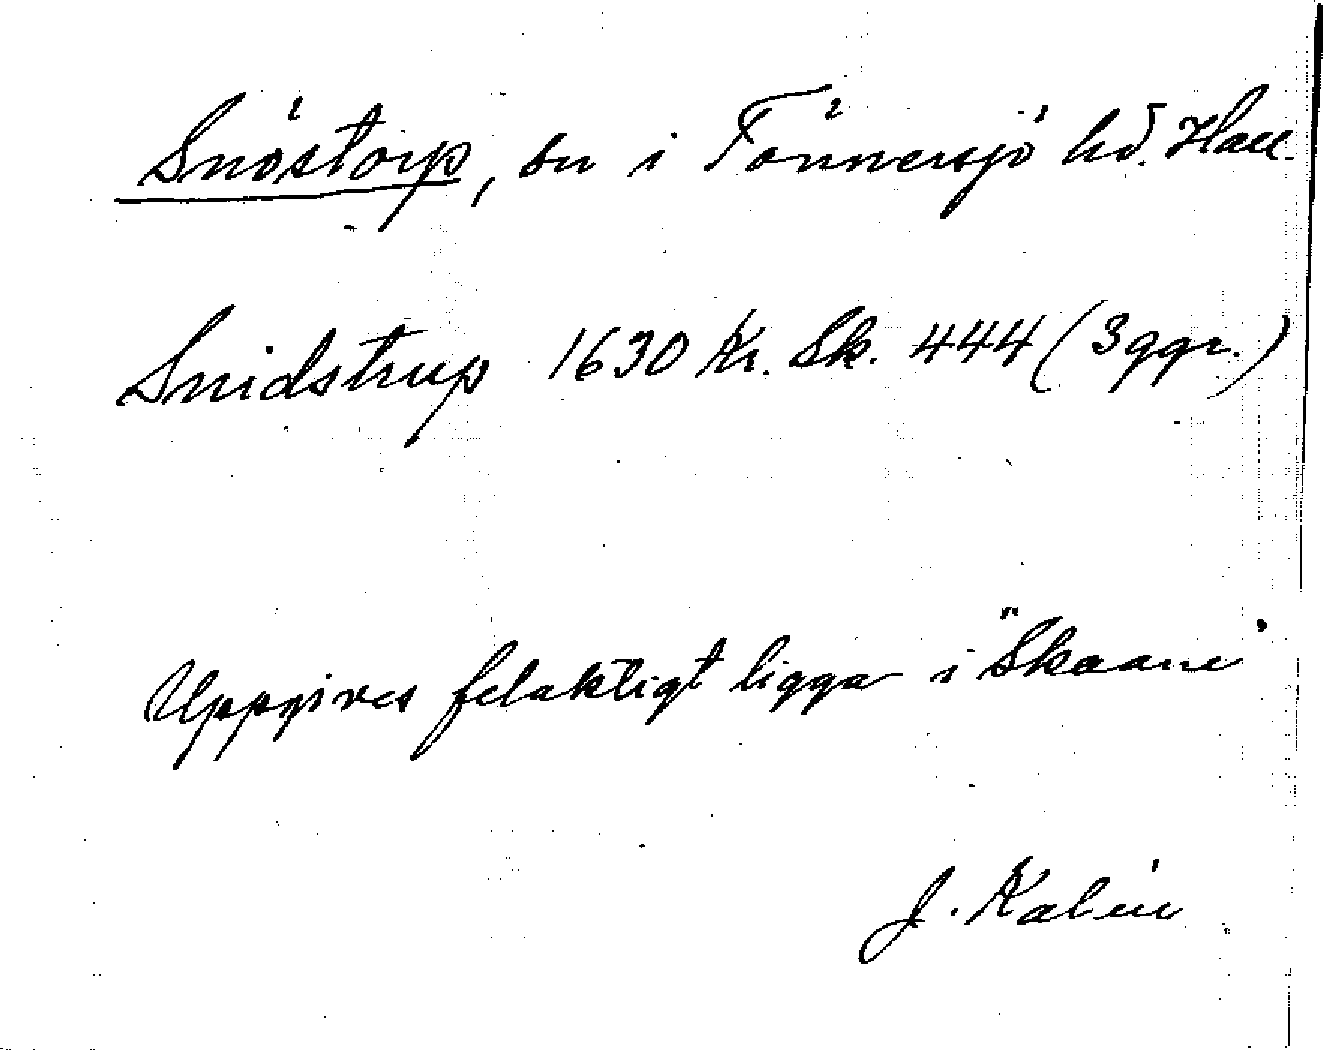 Snöstorp, sn i Tönnersjö hd. Hall.
Snidstrup 1630 Kr. Sk. 444 (3 ggr.)
Uppgives felaktigt ligga i "Skaane"
J. Kalén